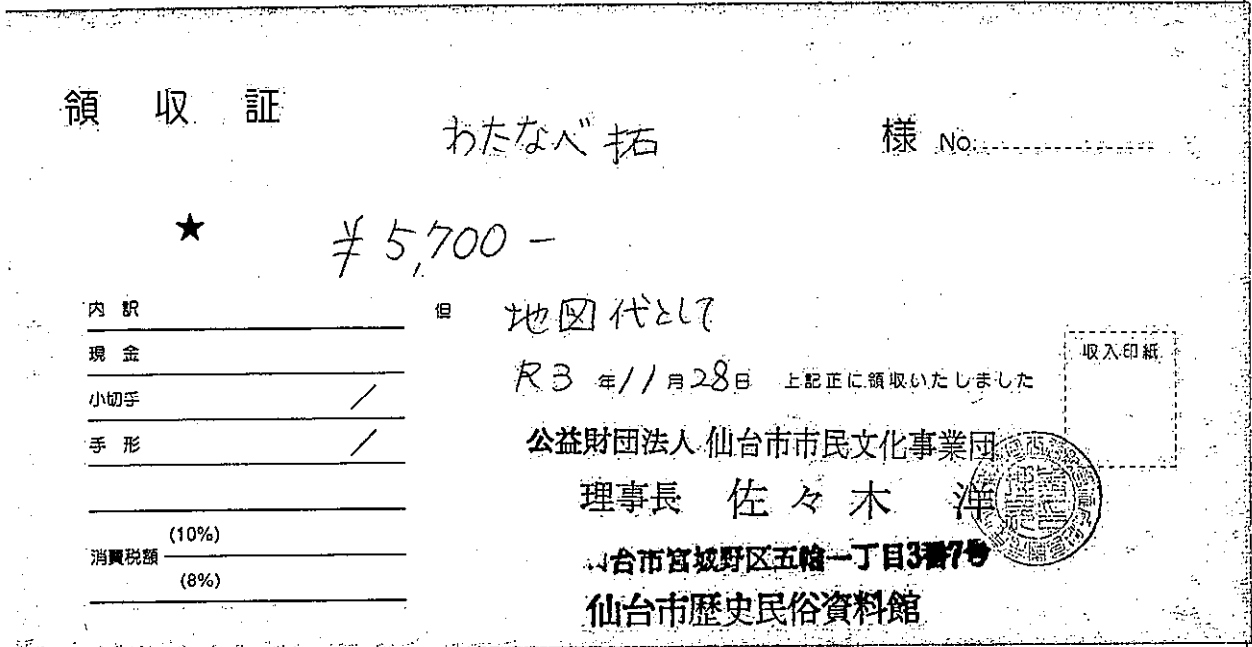 領収証
わたなべ拓 様 No.
★ ¥5,700-
内訳
現金
小切手 /
手形 /
(10%)
消費税額
(8%)
但 地図代として
R3年11月28日 上記正に領収いたしました
収入印紙
公益財団法人 仙台市市民文化事業団
理事長 佐々木 洋
台市宮城野区五輪一丁目3番7号
仙台市歴史民俗資料館